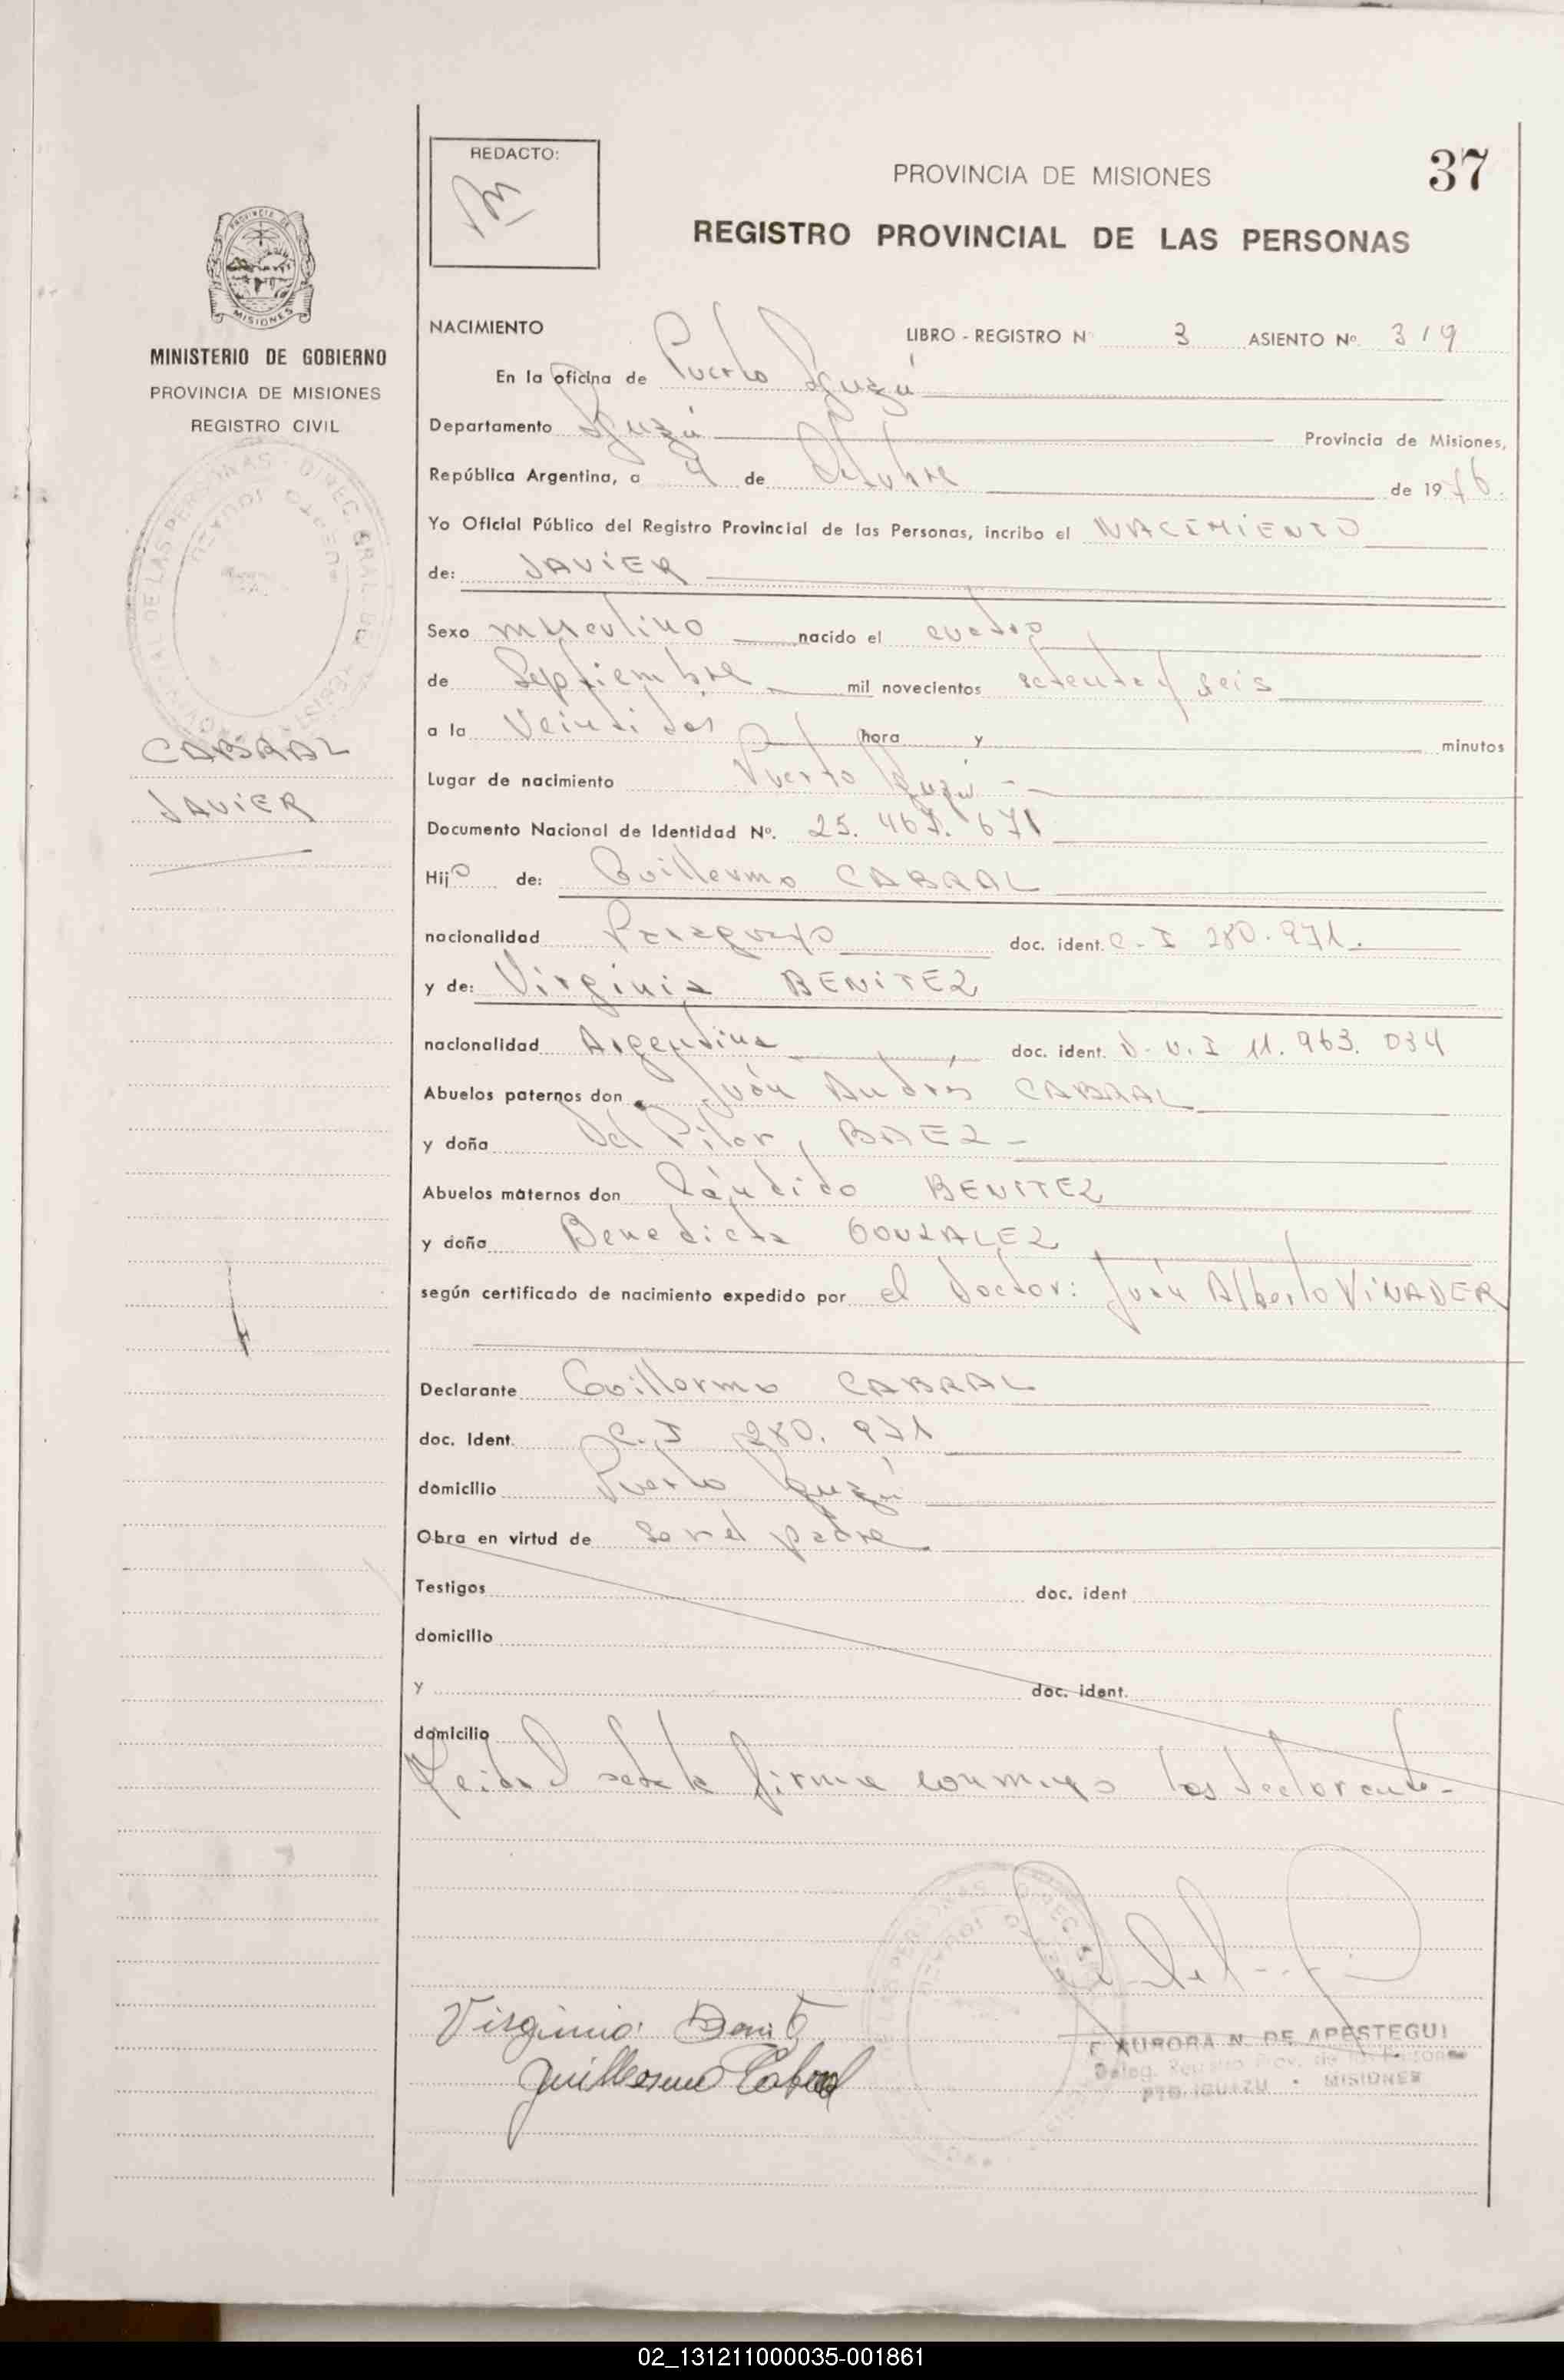 REDACTO:
PROVINCIA DE MISIONES
37
REGISTRO PROVINCIAL DE LAS PERSONAS
MISIONES
MINISTERIO DE GOBIERNO
PROVINCIA DE MISIONES
REGISTRO CIVIL
CABRAL
JAVIER
NACIMIENTO LIBRO - REGISTRO Nº 3 ASIENTO Nº. 319
En la oficina de Puerto Iguazú
Departamento Iguazú Provincia de Misiones,
República Argentina, a 4 de Octubre de 1976.
Yo Oficial Público del Registro Provincial de las Personas, incribo el NACIMIENTO
de: JAVIER
Sexo masculino nacido el cuatro
de Septiembre mil novecientos setenta y seis
a la Veintidos hora y minutos
Lugar de nacimiento Puerto Iguazú -
Documento Nacional de Identidad Nº. 25. 467. 671
Hijo de: Guillermo CABRAL
nacionalidad Paraguayo doc. ident. C. I 280.971.
y de: Virginia BENITEZ
nacionalidad Argentina, doc. ident. D. N. I 11. 963. 034
Abuelos paternos don Juán Andrés CABRAL
y doña Del Pilar, BAEZ -
Abuelos maternos don Cándido BENITEZ
y doña Benedicta GONZALEZ
según certificado de nacimiento expedido por el Doctor: Juán Alberto VINADER
Declarante Guillermo CABRAL
doc. Ident. C. I 280. 971
domicilio Puerto Iguazú
Obra en virtud de ser el padre
Testigos doc. ident
domicilio
y doc. ident.
domicilio
Leida el acta la firma conmigo los declarante-
Virginia Benitz
Guillermo Cabral
AURORA N. DE APESTEGUI
Deleg. Registro Prov. de las Personas
PTO. IGUAZU - MISIONES
02_131211000035-001861